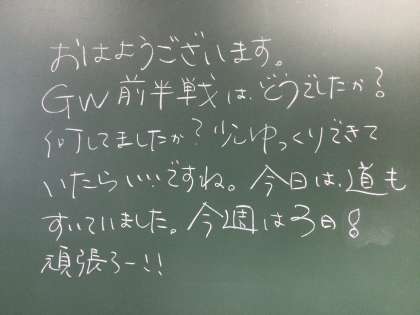 おはようございます。
GW前半戦は、どうでしたか？
何してましたか？少しゆっくりできて
いたらいいですね。今日は、道も
すいていました。今週は3日！
頑張ろー！！